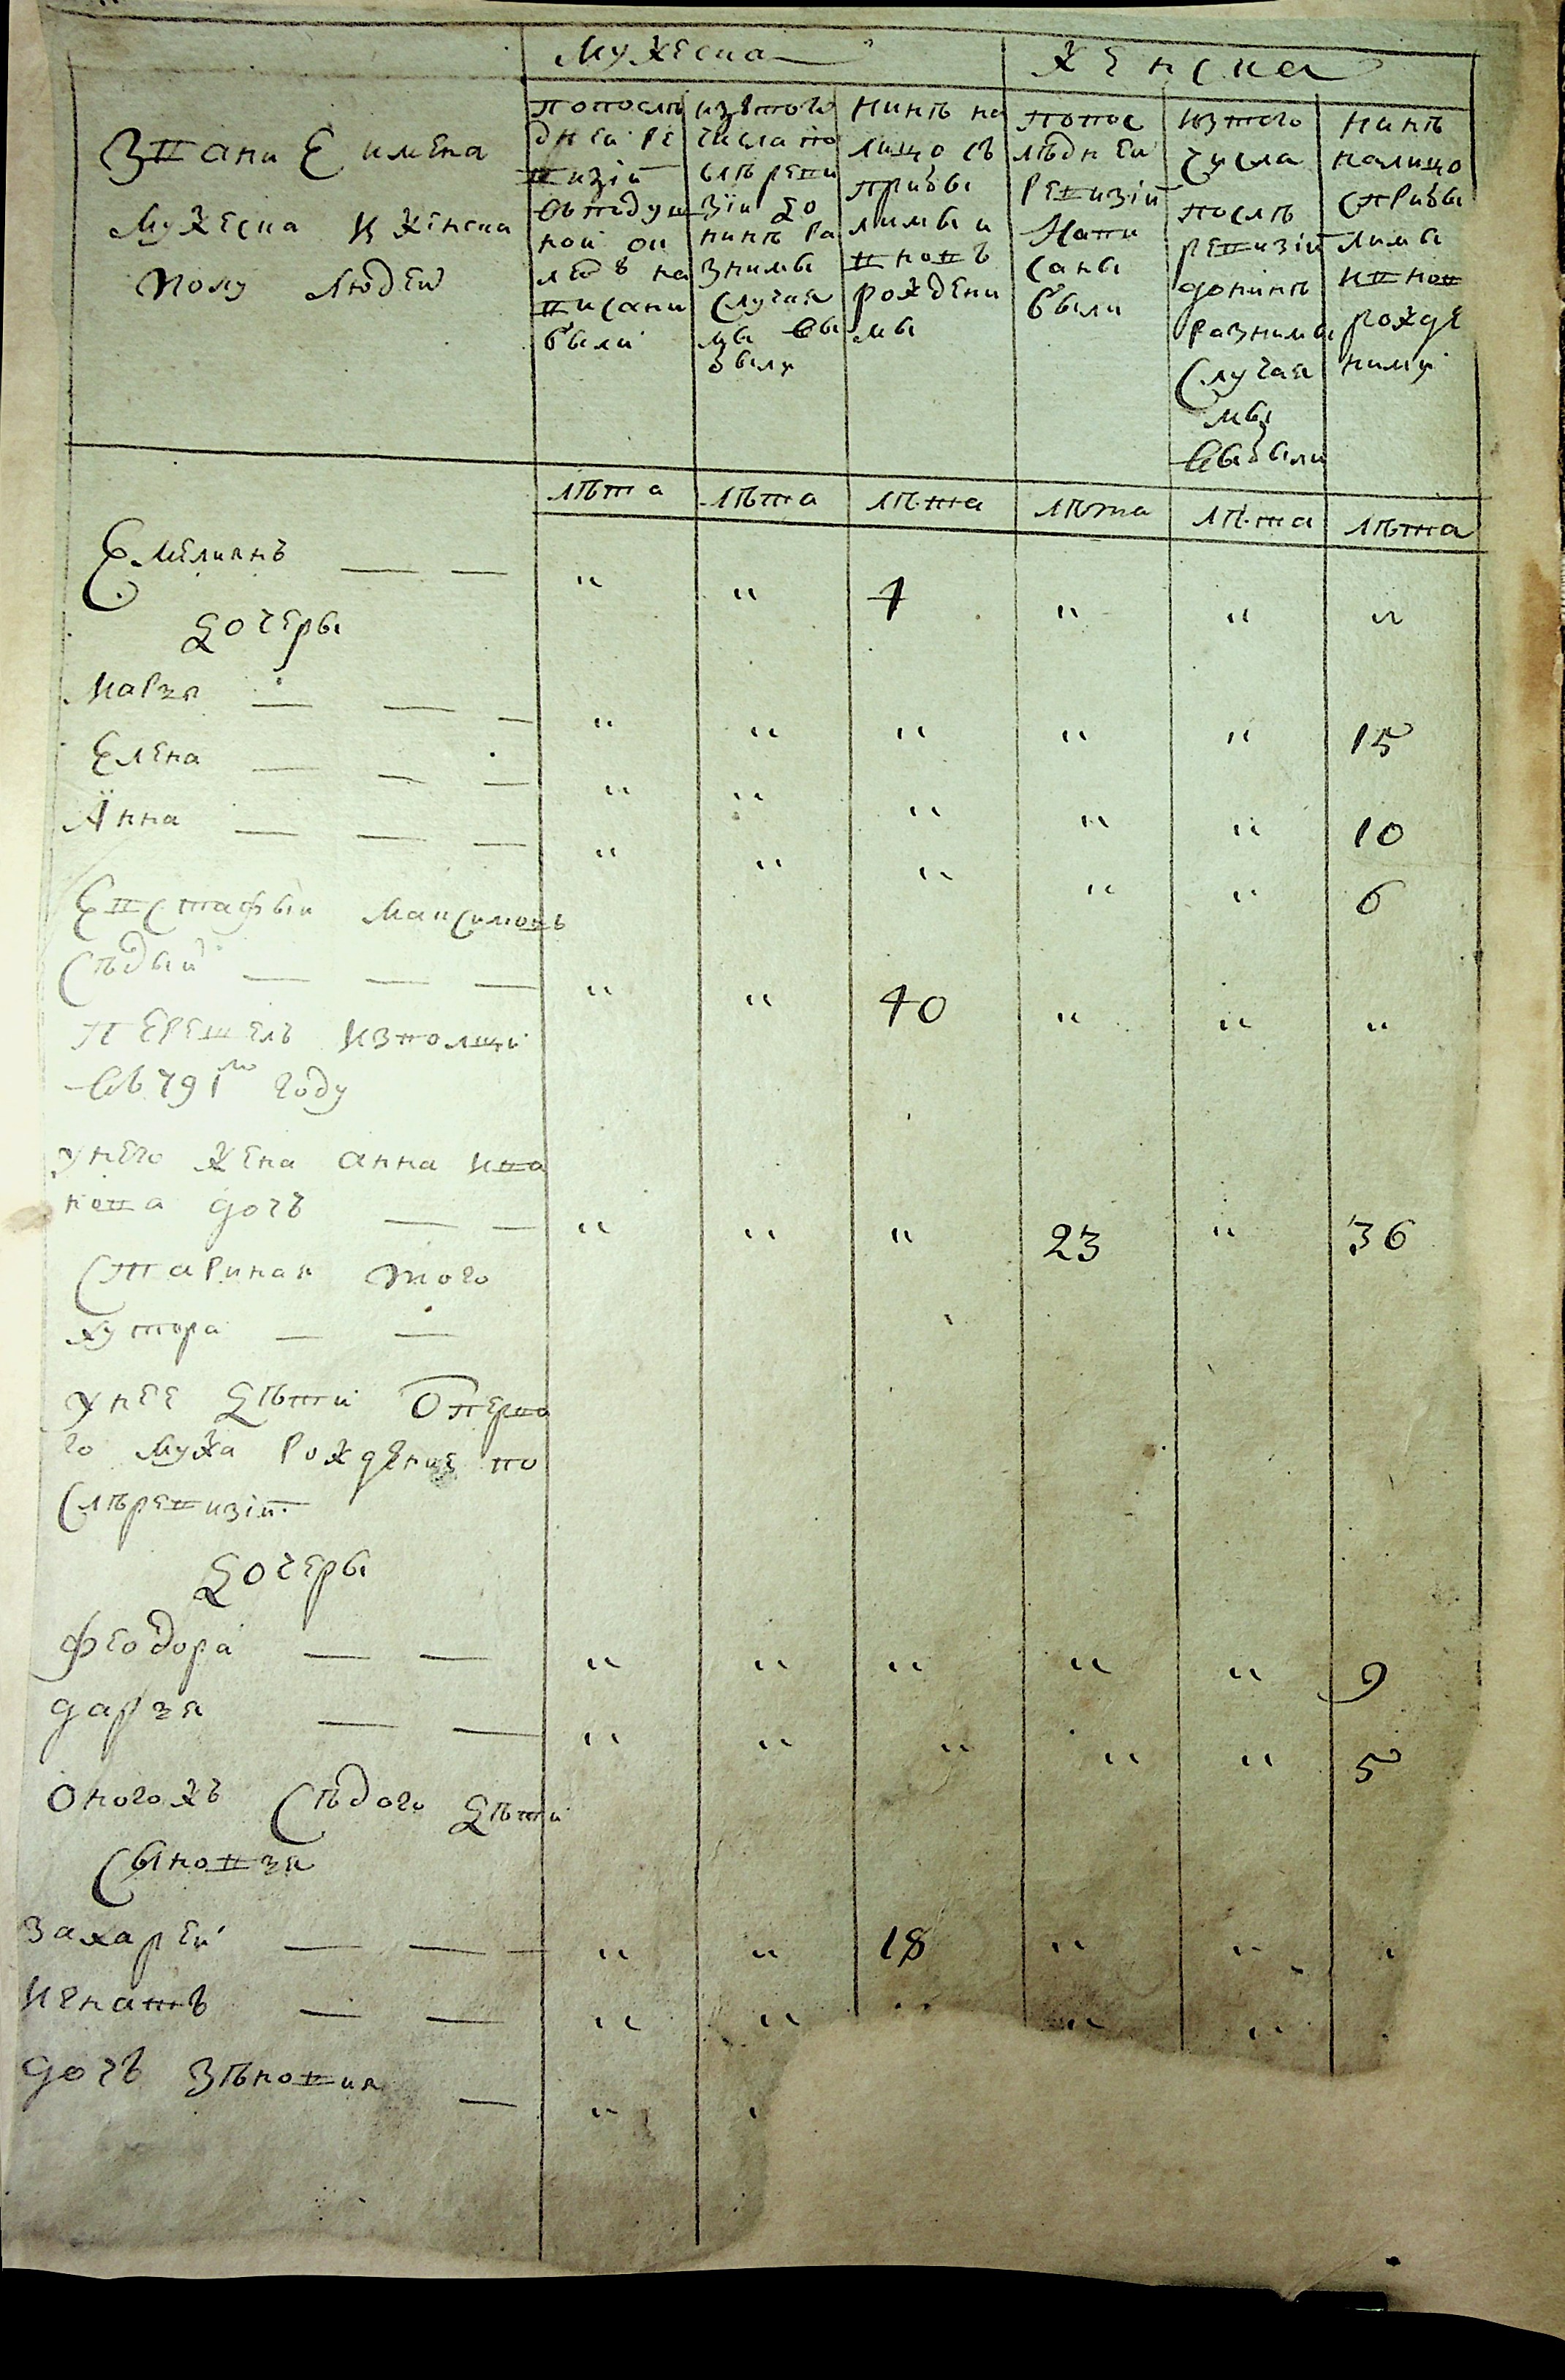 Мужеска
Женска
Звание имена
Мужеска и женска
полу людей
попослѣ
дней ре
визiи
въподуш
ной ок
ладъ на
писани
были
изътого
числа по
слѣреви
зiи до
нинѣ ра
зними
случая
мы вы
были
нинѣ на
лицо съ
прибы
лимы и
вновъ
рождени
мы
попос
лѣдней
ревизiи
напи
саны
были
изтого
числа
послѣ
ревизiи
донинѣ
разними
случая
мы
выбыли
нинѣ
налицо
сприбы
лимы
ивнов
рожде
ними
лѣта лѣта лѣта лѣта лѣта лѣта
Емелианъ — — " " 4 " " "
дочеры
Марья — — — " " " " " 15
Елена — — — " " " " " 10
Анна — — — " " " " " 6
Евстафий Максимовъ
Сѣдый — — — " " 40 " " "
перешелъ изполщи
въ791мъ году
унего жена анна ива
нова дочъ — — " " " 23 " 36
Стариная того
хутора — —
унее дѣти отперва
го мужа рождение по
слѣревизiи
дочеры
феодора — — " " " " " 9
дарья — — " " " " " 5
оногожъ Сѣдого дѣти
Сыновья
Захарей — — — " " 18 " " "
Игнатъ — — " " " " "
дочъ Зѣновия — " "